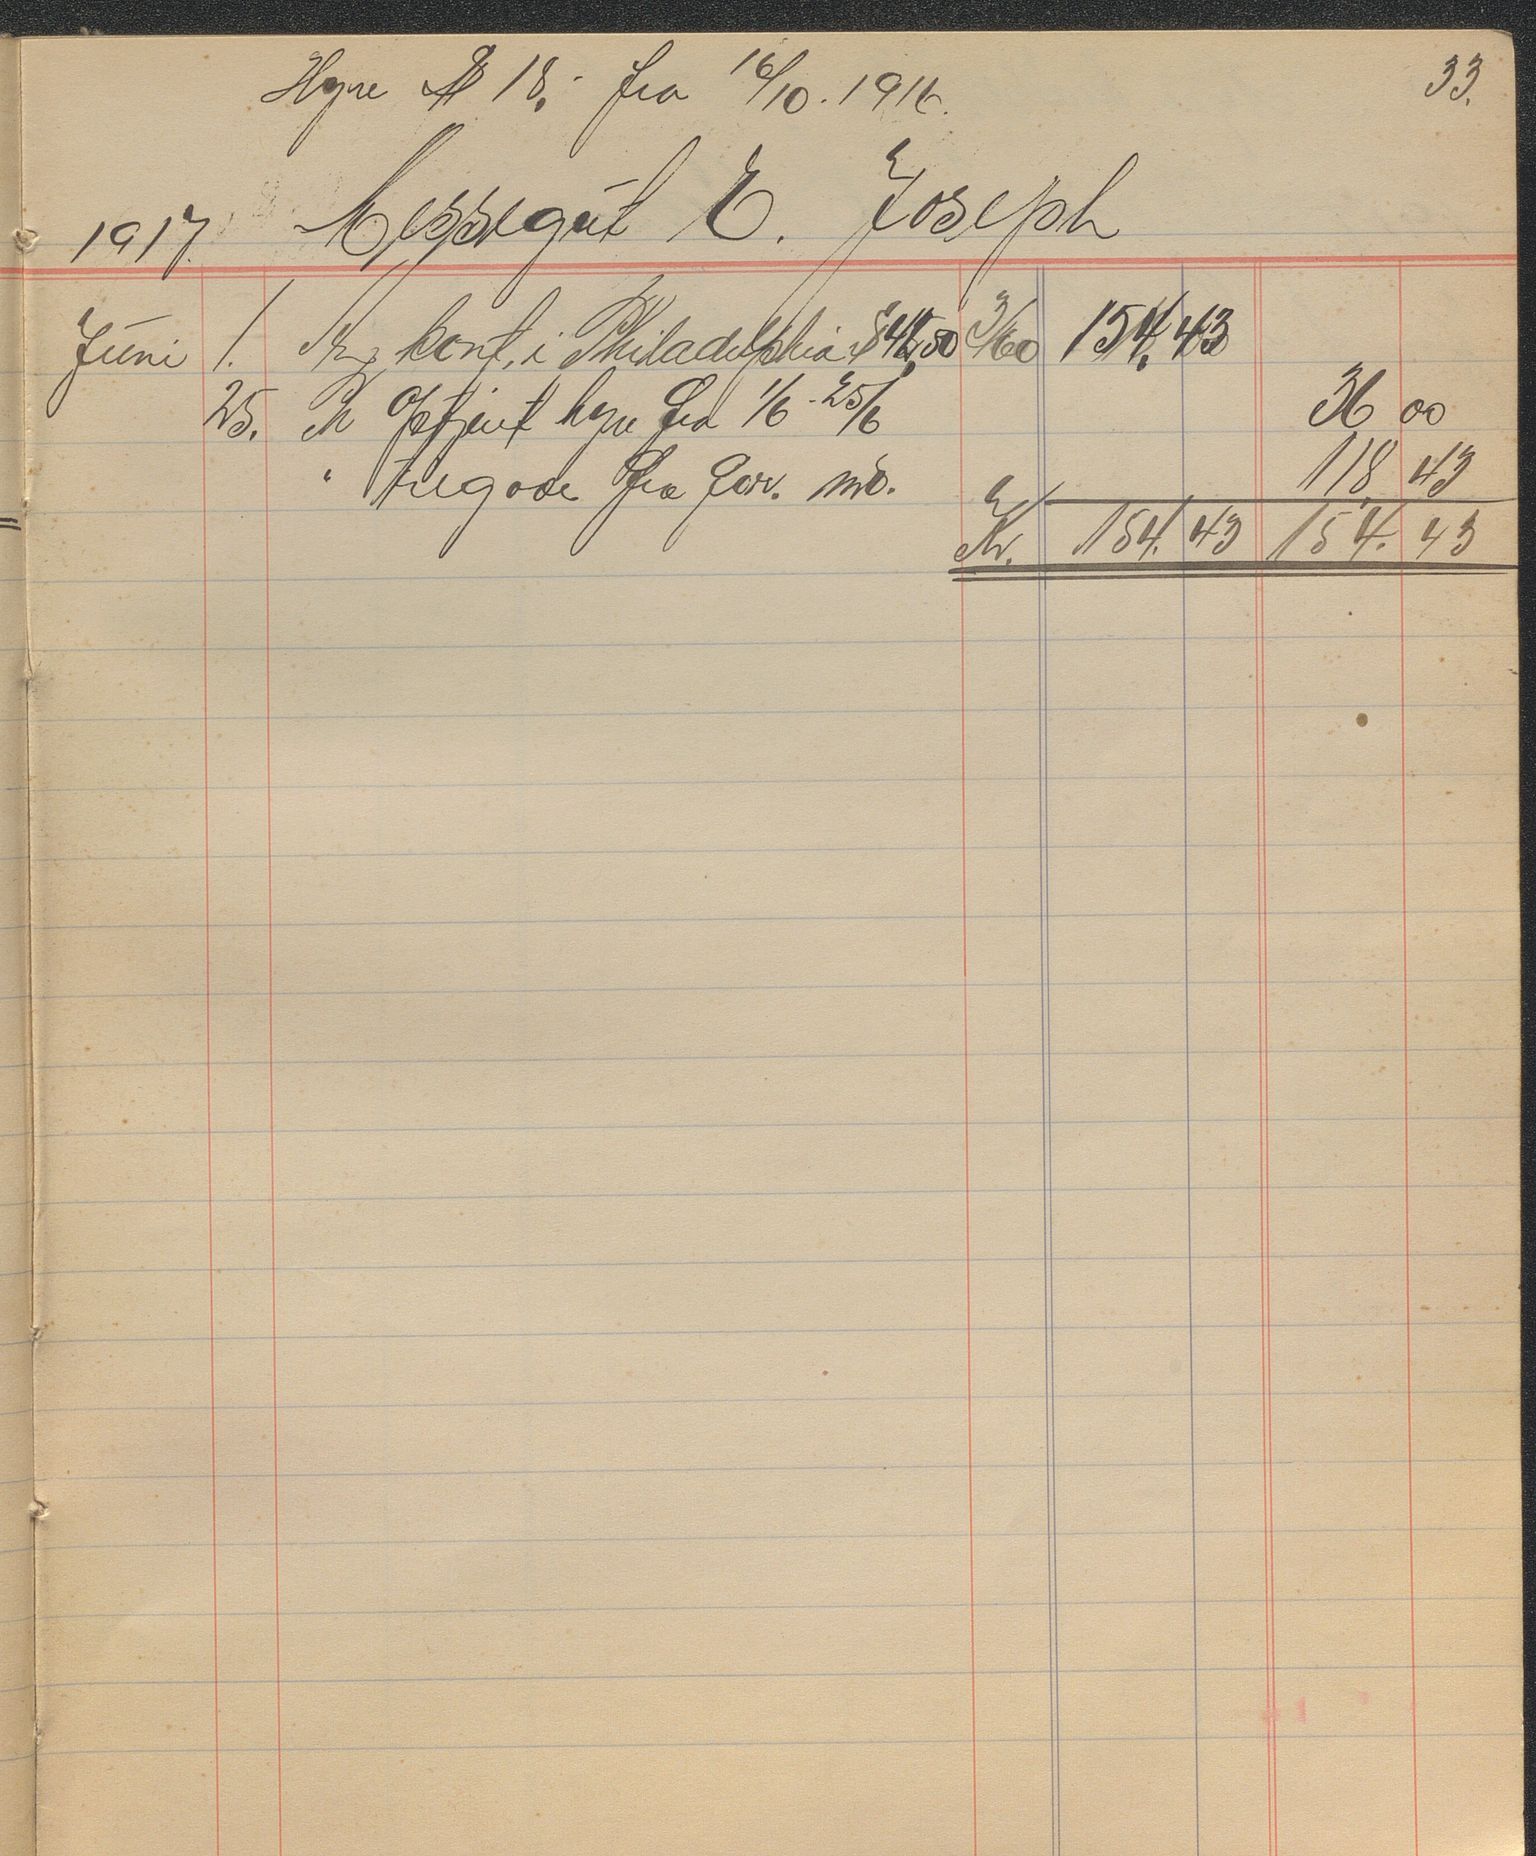 33.
Hyre $ 18,- fra 16/10. 1916.
1917. Messegut E. Joseph
Juni 1. An kont. i Philadelphia $ 44,50 3/60 154,43
25. Pr Optjent hyre fra 1/6 - 25/6 36 00
" tilgode fra forr. md. 118,43
Kr. 154.43 154.43